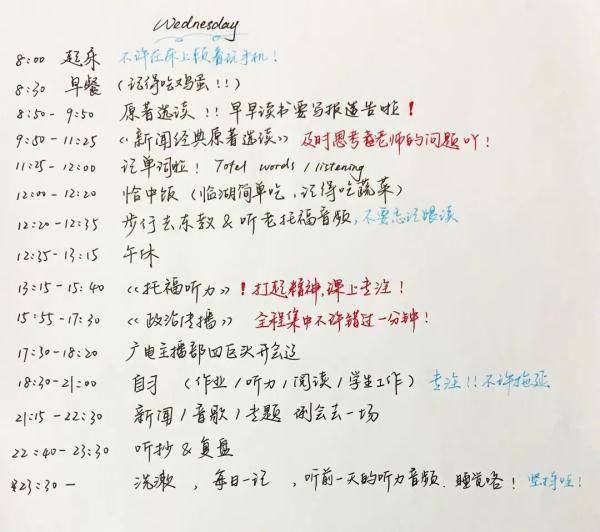 Wednesday
8:00 起床 不许在床上躺着玩手机！
8:30 早餐 （记得吃鸡蛋！！）
8:50 - 9:50 原著选读 !! 早早读书要写报道告啦！
9:50 - 11:25 《新闻经典原著选读》 及时思考老师的问题吖！
11:25 - 12:00 记单词啦！ Tofel words / listening
12:00 - 12:20 恰中饭 （临湖简单吃，记得吃蔬菜）
12:20 - 12:35 步行去东教 & 听老托福音频，不要忘记跟读
12:35 - 13:15 午休
13:15 - 15:40 《托福听力》！打起精神，课上专注！
15:55 - 17:30 《政治传播》 全程集中不许错过一分钟！
17:30 - 18:20 广电主播部四巨头开会
18:30 - 21:00 自习 （作业 / 听力 / 阅读 / 学生工作） 专注!! 不许拖延
21:15 - 22:30 新闻 / 音歌 / 专题 例会去一场
22:40 - 23:30 听抄 & 复盘
23:30 — 洗漱 ，每日一记 ，听前一天的听力音频．睡觉咯！ 坚持哇！